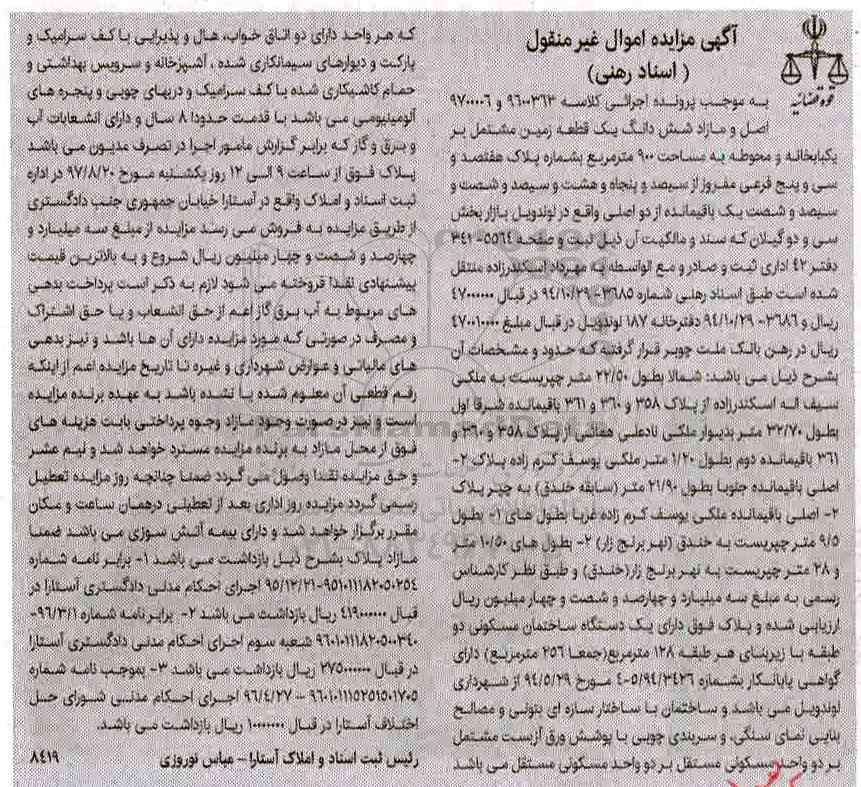 قوه قضائیه
آگهی مزایده اموال غیر منقول
( اسناد رهنی)
به موجب پرونده اجرائی کلاسه ۹۶۰۰۳۶۳ و ۹۷۰۰۰۰۶
اصل و مازاد شش دانگ یک قطعه زمین مشتمل بر
یکبابخانه و محوطه به مساحت ۹۰۰ مترمربع بشماره پلاک هفتصد و
سی و پنج فرعی مفروز از سیصد و پنجاه و هشت و سیصد و شصت و
سیصد و شصت یک باقیمانده از دو اصلی واقع در لوندویل بازار بخش
سی و دو گیلان که سند و مالکیت آن ذیل ثبت و صفحه ۵۵۶۴-۳۴۱
دفتر ۴۲ اداری ثبت و صادر و مع الواسطه به مهرداد اسکندرزاده منتقل
شده است طبق اسناد رهنی شماره ۳۶۸۵-۹۴/۱۰/۲۹ در قبال ۴۷۰۰۰۰۰۰
ریال و ۳۶۸۶-۹۴/۱۰/۲۹ دفترخانه ۱۸۷ لوندویل در قبال مبلغ ۴۷۰۰۱۰۰۰۰
ریال در رهن بانک ملت چوبر قرار گرفته که حدود و مشخصات آن
بشرح ذیل می باشد: شمالا بطول ۲۲/۵۰ متر چپریست به ملکی
سیف اله اسکندرزاده از پلاک ۳۵۸ و ۳۶۰ و ۳۶۱ باقیمانده شرقا اول
بطول ۳۲/۷۰ متر بدیوار ملکی نادعلی همائی از پلاک ۳۵۸ و ۳۶۰ و
۳۶۱ باقیمانده دوم بطول ۱/۲۰ متر ملکی یوسف کرم زاده پلاک ۲-
اصلی باقیمانده جنوبا بطول ۲۱/۹۰ متر (سابقه خندق) به چپر پلاک
۲- اصلی باقیمانده ملکی یوسف کرم زاده غربا بطول های ۱- بطول
۹/۵ متر چپریست به خندق (نهر برنج زار) ۲- بطول های ۱۰/۵۰ متر
و ۲۸ متر چپریست به نهر برنج زار(خندق) و طبق نظر کارشناس
رسمی به مبلغ سه میلیارد و چهارصد و شصت و چهار میلیون ریال
ارزیابی شده و پلاک فوق دارای یک دستگاه ساختمان مسکونی دو
طبقه با زیربنای هر طبقه ۱۲۸ مترمربع(جمعا ۲۵۶ مترمربع) دارای
گواهی پایانکار بشماره ۵/۹۴/۳۴۲۶-۴ مورخ ۹۴/۵/۲۹ از شهرداری
لوندویل می باشد و ساختمان با ساختار سازه ای بتونی و مصالح
بنایی نمای سنگی، و سربندی چوبی با پوشش ورق آزبست مشتمل
بر دو واحد مسکونی مستقل بر دو واحد مسکونی مستقل می باشد
که هر واحد دارای دو اتاق خواب، هال و پذیرایی با کف سرامیک و
پارکت و دیوارهای سیمانکاری شده ، آشپزخانه و سرویس بهداشتی و
حمام کاشیکاری شده با کف سرامیک و دربهای چوبی و پنجره های
آلومینیومی می باشد با قدمت حدودا ۸ سال و دارای انشعابات آب
و برق و گاز که برابر گزارش مامور اجرا در تصرف مدیون می باشد
پلاک فوق از ساعت ۹ الی ۱۲ روز یکشنبه مورخ ۹۷/۸/۲۰ در اداره
ثبت اسناد و املاک واقع در آستارا خیابان جمهوری جنب دادگستری
از طریق مزایده به فروش می رسد مزایده از مبلغ سه میلیارد و
چهارصد و شصت و چهار میلیون ریال شروع و به بالاترین قیمت
پیشنهادی نقدا فروخته می شود لازم به ذکر است پرداخت بدهی
های مربوط به آب برق گاز اعم از حق انشعاب و یا حق اشتراک
و مصرف در صورتی که مورد مزایده دارای آن ها باشد و نیز بدهی
های مالیاتی و عوارض شهرداری و غیره تا تاریخ مزایده اعم از اینکه
رقم قطعی آن معلوم شده یا نشده باشد به عهده برنده مزایده
است و نیز در صورت وجود مازاد وجوه پرداختی بابت هزینه های
فوق از محل مازاد به برنده مزایده مسترد خواهد شد و نیم عشر
و حق مزایده نقدا وصول می گردد ضمنا چنانچه روز مزایده تعطیل
رسمی گردد مزایده روز اداری بعد از تعطیلی درهمان ساعت و مکان
مقرر برگزار خواهد شد و دارای بیمه آتش سوزی می باشد ضمنا
مازاد پلاک بشرح ذیل بازداشت می باشد ۱- برابر نامه شماره
۹۵۱۰۱۱۱۸۲۰۵۰۲۵۴-۹۵/۱۲/۲۱ اجرای احکام مدنی دادگستری آستارا در
قبال ۴۱۹۰۰۰۰۰۰ ریال بازداشت می باشد ۲- برابر نامه شماره ۹۶/۳/۱-
۹۶۰۱۰۱۱۱۸۲۰۵۰۰۳۴۰ شعبه سوم اجرای احکام مدنی دادگستری آستارا
در قبال ۲۷۵۰۰۰۰۰۰ ریال بازداشت می باشد ۳- بموجب نامه شماره
۹۶۰۱۰۱۱۱۵۲۵۱۵۰۱۷۰۵ – ۹۶/۴/۲۷ اجرای احکام مدنی شورای حل
اختلاف آستارا در قبال ۱۰۰۰۰۰۰۰ ریال بازداشت می باشد.
رئیس ثبت اسناد و املاک آستارا – عباس نوروزی ۸۴۱۹